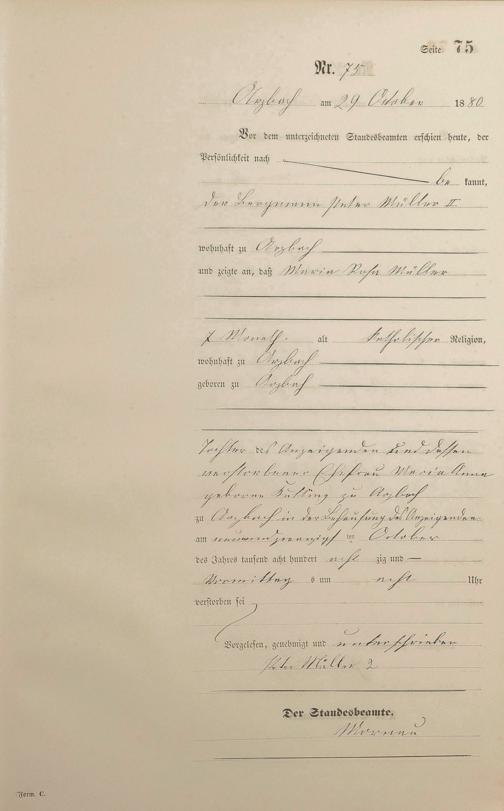 Seite 75
Nr. 75
Arzbach am 29 October 1880
Vor dem unterzeichneten Standesbeamten erschien heute, der
Persönlichkeit nach
be kannt,
der Bergmann Peter Müller II
wohnhaft zu Arzbach
und zeigte an, daß Maria Rosa Müller
7 Monath. alt katholischer Religion,
wohnhaft zu Arzbach
geboren zu Arzbach
Tochter des Anzeigenden und dessen
verstorbener Ehefrau Maria Anna
geborene zu Arzbach
zu Arzbach in der Behausung des Anzeigenden
am neunundzwanzigst en October
des Jahres tausend acht hundert acht zig und —
Vormittag s um acht Uhr
verstorben sei
Vorgelesen, genehmigt und unterschrieben
Peter Müller 2
Der Standesbeamte.
Form. C.